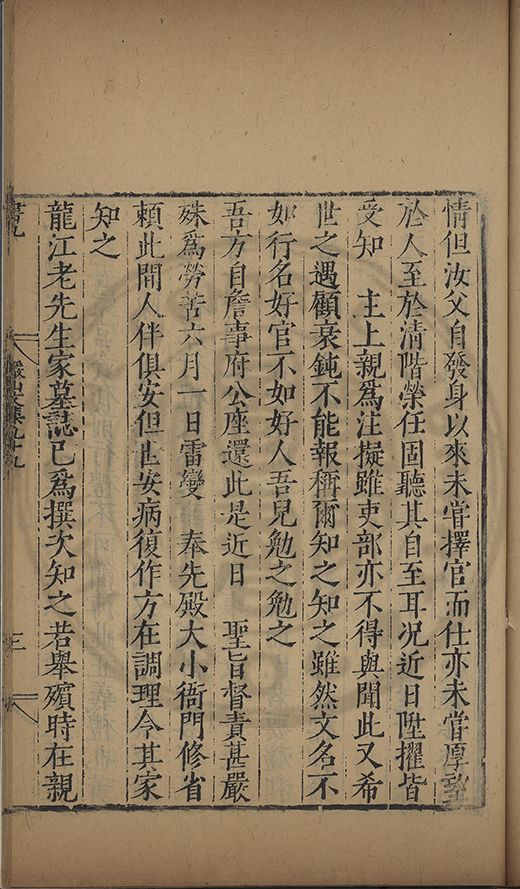 情但汝父自發身以來未嘗擇官而仕亦未嘗厚望
於人至於清階榮任固聽其自至耳况近日陞擢皆
受知　主上親爲注擬雖吏部亦不得與聞此又希
世之遇顧衰鈍不能報稱爾知之知之雖然文名不
如行名好官不如好人吾兒勉之勉之
吾方自詹事府公座還此是近日　聖旨督責甚嚴
殊爲勞苦六月一日雷變　奉先殿大小衙門修省
賴此間人伴俱安但世安病復作方在調理令其家
知之
龍江老先生家墓誌已爲撰次知之若舉殯時在親
書九
儼山集九十九
三